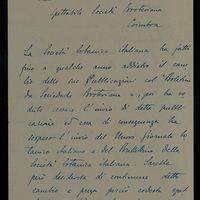 Spettabile Società Broteriana
Coimbra
La Società botanica italiana ha fatto
fino a qualche anno addietro il cam
bio delle sue Pubblicazioni col "Boletim
da Sociedade Broteriana", per ha ve
duto cessare l'invio di detta pubbli
cazione ed essa di conseguenza ha
sospeso l'invio del Nuovo giornale bo
tanico italiano e del Bullettino della
Società botanica italiana. Sarebbe
però desiderosa di continuare detto
cambio e prega perciò codesta spet